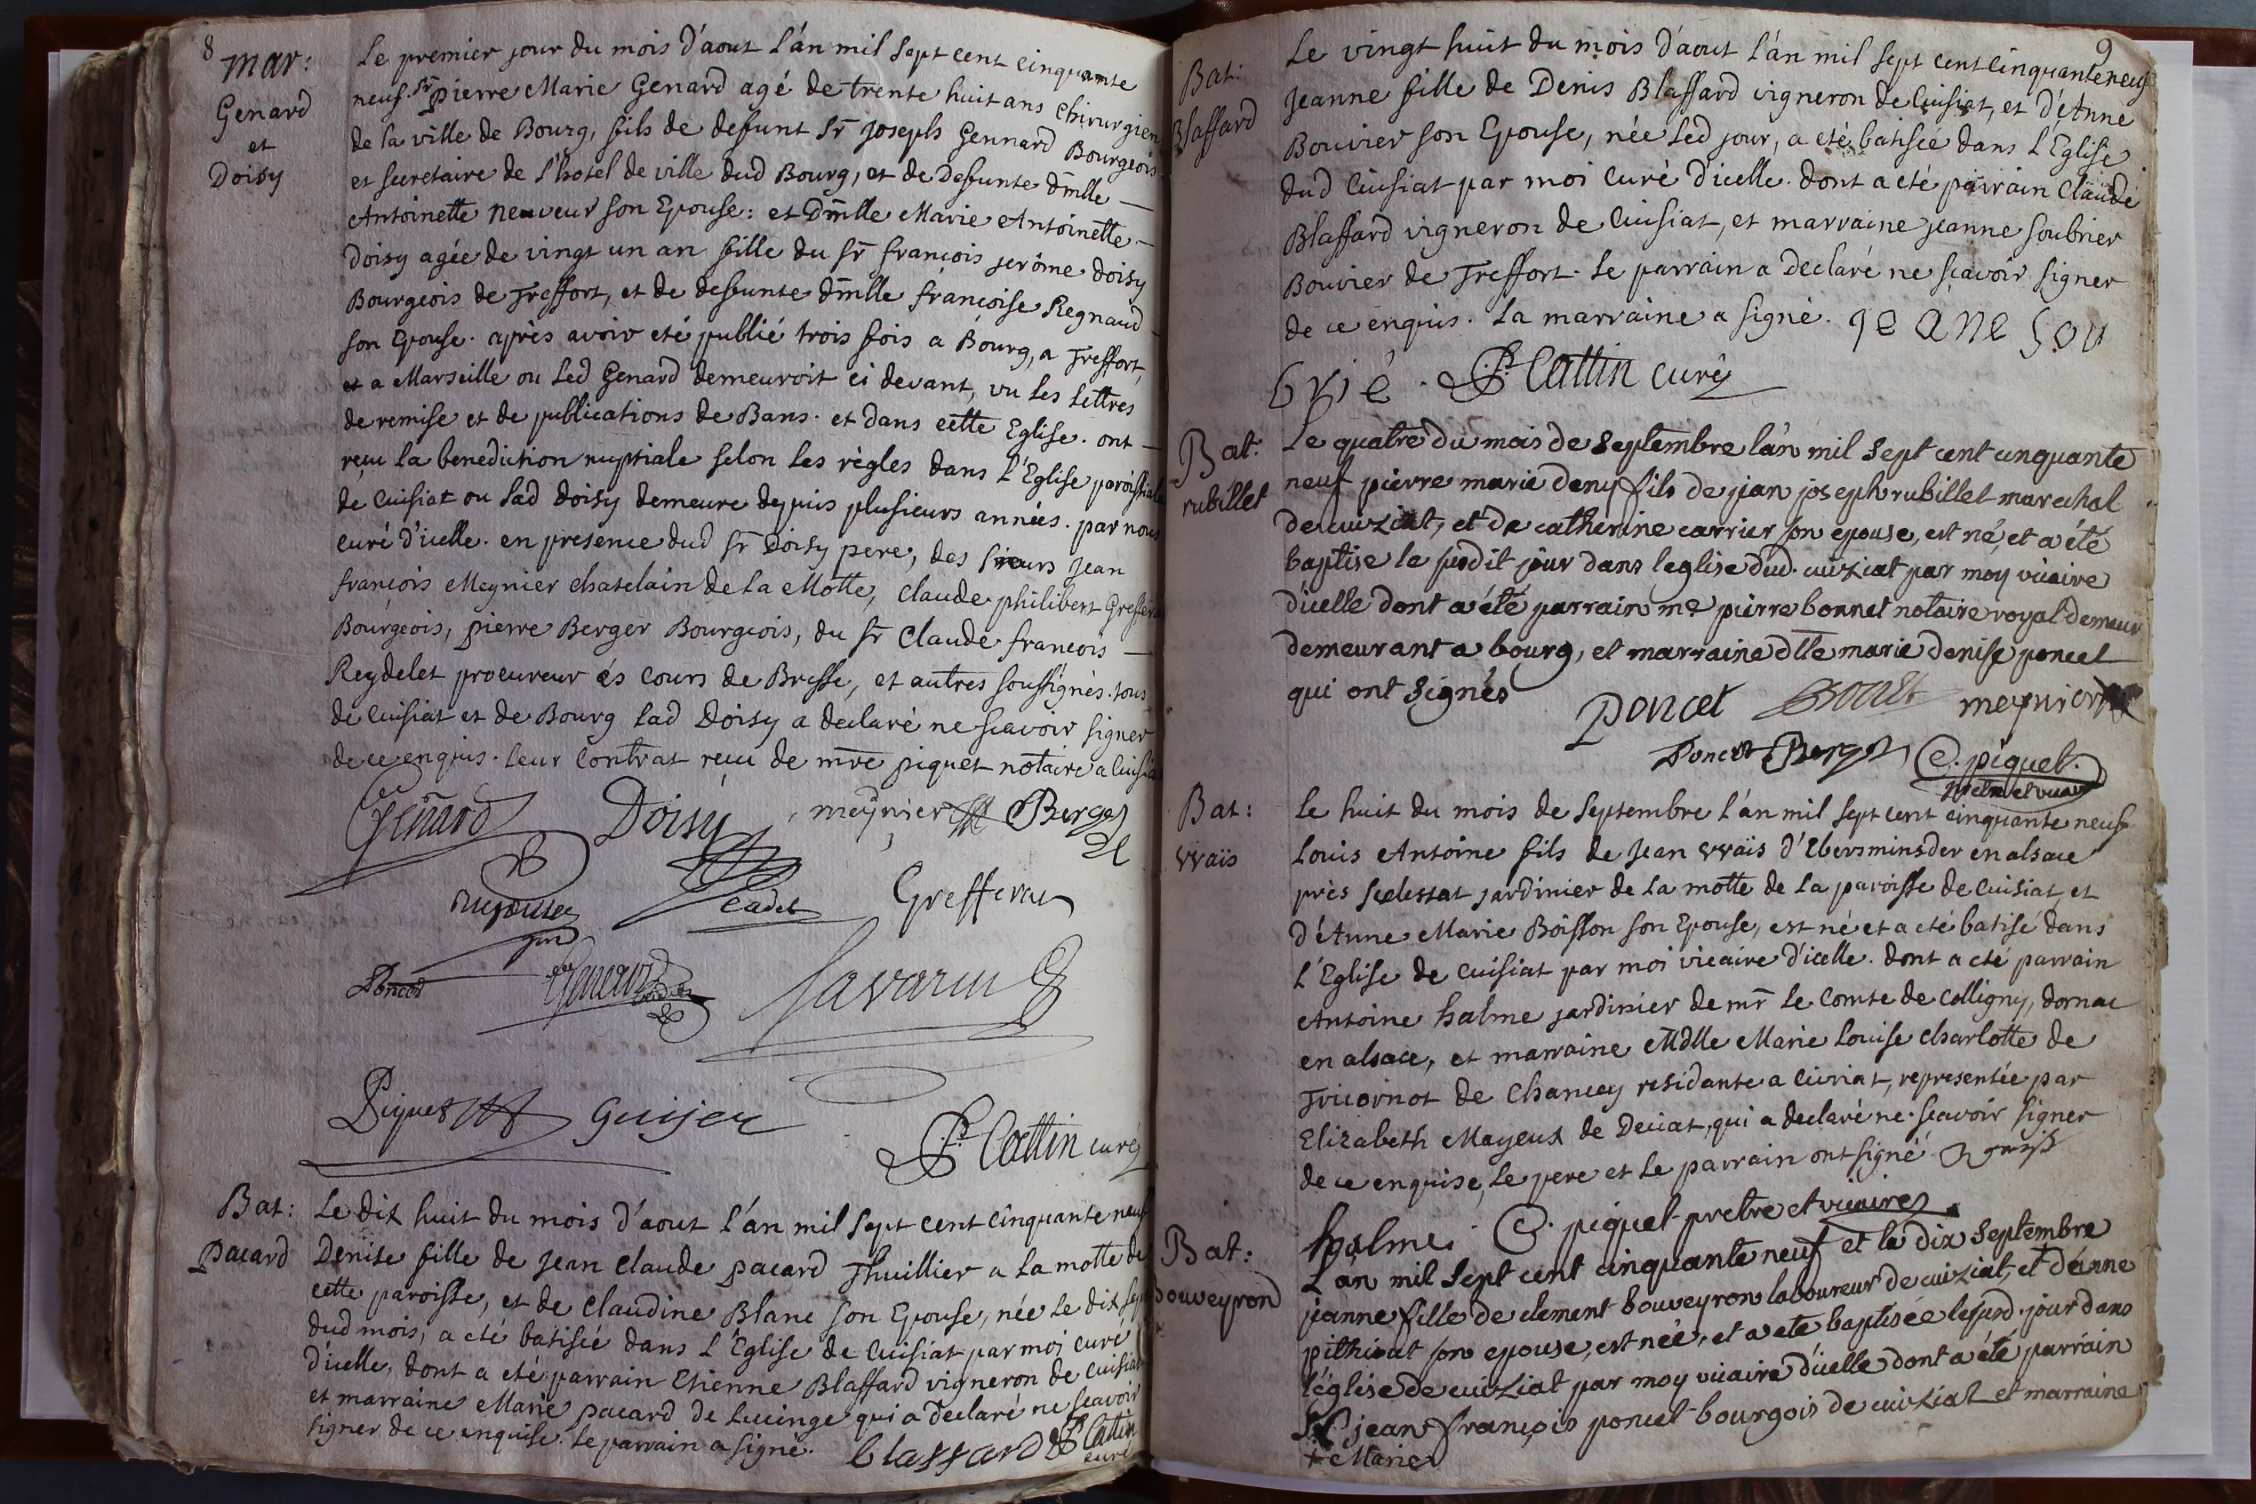 8
mar:
Genard
et
Doisy
Le premier jour du mois d'aout l'an mil sept cent cinquante
neuf. Sr pierre Marie Genard agé de trente huit ans Chirurgien
de la ville de Bourg, fils de defunt Sr Joseph Gennard Bourgeois
et secretaire de l'hotel de ville dud Bourg, et de defunte dmlle —
Antoinette neuveur son Epouse: et Dmlle Marie Antoinette —
Doisy agée de vingt un an fille du Sr françois jerôme doisy
Bourgeois de Treffort, et de defunte dmlle françoise Regnaud —
son Epouse. après avoir eté publié trois fois a Bourg, a Treffort,
et a Marseille ou led Genard demeuroit ci devant, vu les lettres
de remise et de publications de Bans. et dans cette Eglise. ont —
reçu la benediction nuptiale selon les règles dans l'Eglise paroissiale
de Cuisiat ou lad doisy demeure depuis plusieurs années. par nous
curé d'icelle. en presence dud Sr Doisy pere, des sieurs Jean
françois Meynier chatelain de la Motte, Claude philibert Grefferat
Bourgeois, pierre Berger Bourgeois, du Sr Claude françois —
Reydelet procureur és cours de Bresse, et autres soussignés. tous
de Cuisiat et de Bourg lad Doisy a declaré ne scavoir signer
de ce enquis. leur Contrat reçu de mre piquet notaire a Cuisiat
Genard Doisy meynier Berger
Cadet Grefferat
Poncet Genard Savarin
Piquet Guijeu
P. Cattin curé
Bat:
Pacard
Le dix huit du mois d'aout l'an mil sept cent cinquante neuf
Denise fille de Jean Claude pacard Thuillier a la motte de
cette paroisse, et de Claudine Blanc son Epouse, née le dix sept
dud mois, a eté batisée dans l'Eglise de Cuisiat par moi curé
d'icelle, dont a eté parrain Etienne Blaffard vigneron de Cuisiat
et marraine Marie pacard de Lucinge qui a declaré ne scavoir
signer de ce enquise. le parrain a signé. blaffard P. Cattin
curé
9
Bat:
Blaffard
Le vingt huit du mois d'aout l'an mil sept cent cinquante neuf
Jeanne fille de Denis Blaffard vigneron de Cuisiat, et d'Anne
Bouvier son Epouse, née led jour, a eté batisée dans l'Eglise
dud Cuisiat par moi Curé d'icelle. dont a eté parrain Claude
Blaffard vigneron de Cuisiat, et marraine jeanne Soubrier
Bouvier de Treffort. le parrain a declaré ne scavoir signer
de ce enquis. la marraine a signé. jeane Sou
brié. P. Cattin curé
Bat:
rubillet
Le quatre du mois de septembre l'an mil sept cent cinquante
neuf pierre marie deny fils de jean joseph rubillet marechal
de cuiziat, et de catherine carrier son epouse, est né, et a été
baptise le susdit jour dans leglise dud. cuiziat par moy vicaire
d'icelle dont a été parrain me pierre bonnet notaire royal demeur
demeurant a bourg, et marraine dlle marie denise poncet
qui ont signés
Poncet Bonet meynier
Poncet Berger C. piquet.
pretre et vicaire
Bat:
vvaïs
Le huit du mois de septembre l'an mil sept cent cinquante neuf
Louis Antoine fils de Jean vvaïs d'Ebersminsder en alsace
près selestat jardinier de la motte de la paroisse de Cuisiat, et
d'Anne Marie Boisson son Epouse, est né et a eté batisé dans
l'Eglise de Cuisiat par moi vicaire d'icelle. dont a eté parrain
Antoine halme jardinier de mr le Comte de Colligny, dornac
en alsace, et marraine Mdlle Marie Louise Charlotte de
Tricornot de Chancey residante a Civriat, representée par
Elizabeth Mayeux de Deciat, qui a declaré ne scavoir signer
de ce enquise, le pere et le parrain ont signé.
halme. C. piquet pretre et vicaire
Bat:
bouveyron
L'an mil sept cent cinquante neuf et le dix septembre
jeanne fille de clement bouveyron laboureur de cuiziat, et d'anne
pithiout son epouse, est née, et a ete baptisée lesusd. jour dans
l'église de cuiziat par moy vicaire d'icelle dont a été parrain
Sr jean françois poncet bourgois de cuiziat et marraine
+ Marie